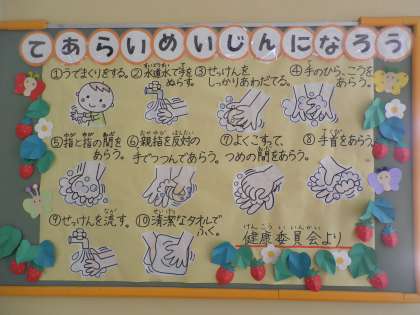 てあらいめいじんになろう
①うでまくりをする。
②水道水で手を
ぬらす。
③せっけんを
しっかりあわだてる。
④手のひら、こうを
あらう。
⑤指と指の間を
あらう。
⑥親指を反対の
手でつつんであらう。
⑦よくこすって、
つめの間をあらう。
⑧手首をあらう。
⑨せっけんを流す。
⑩清潔なタオルで
ふく。
けんこういいんかい
健康委員会より